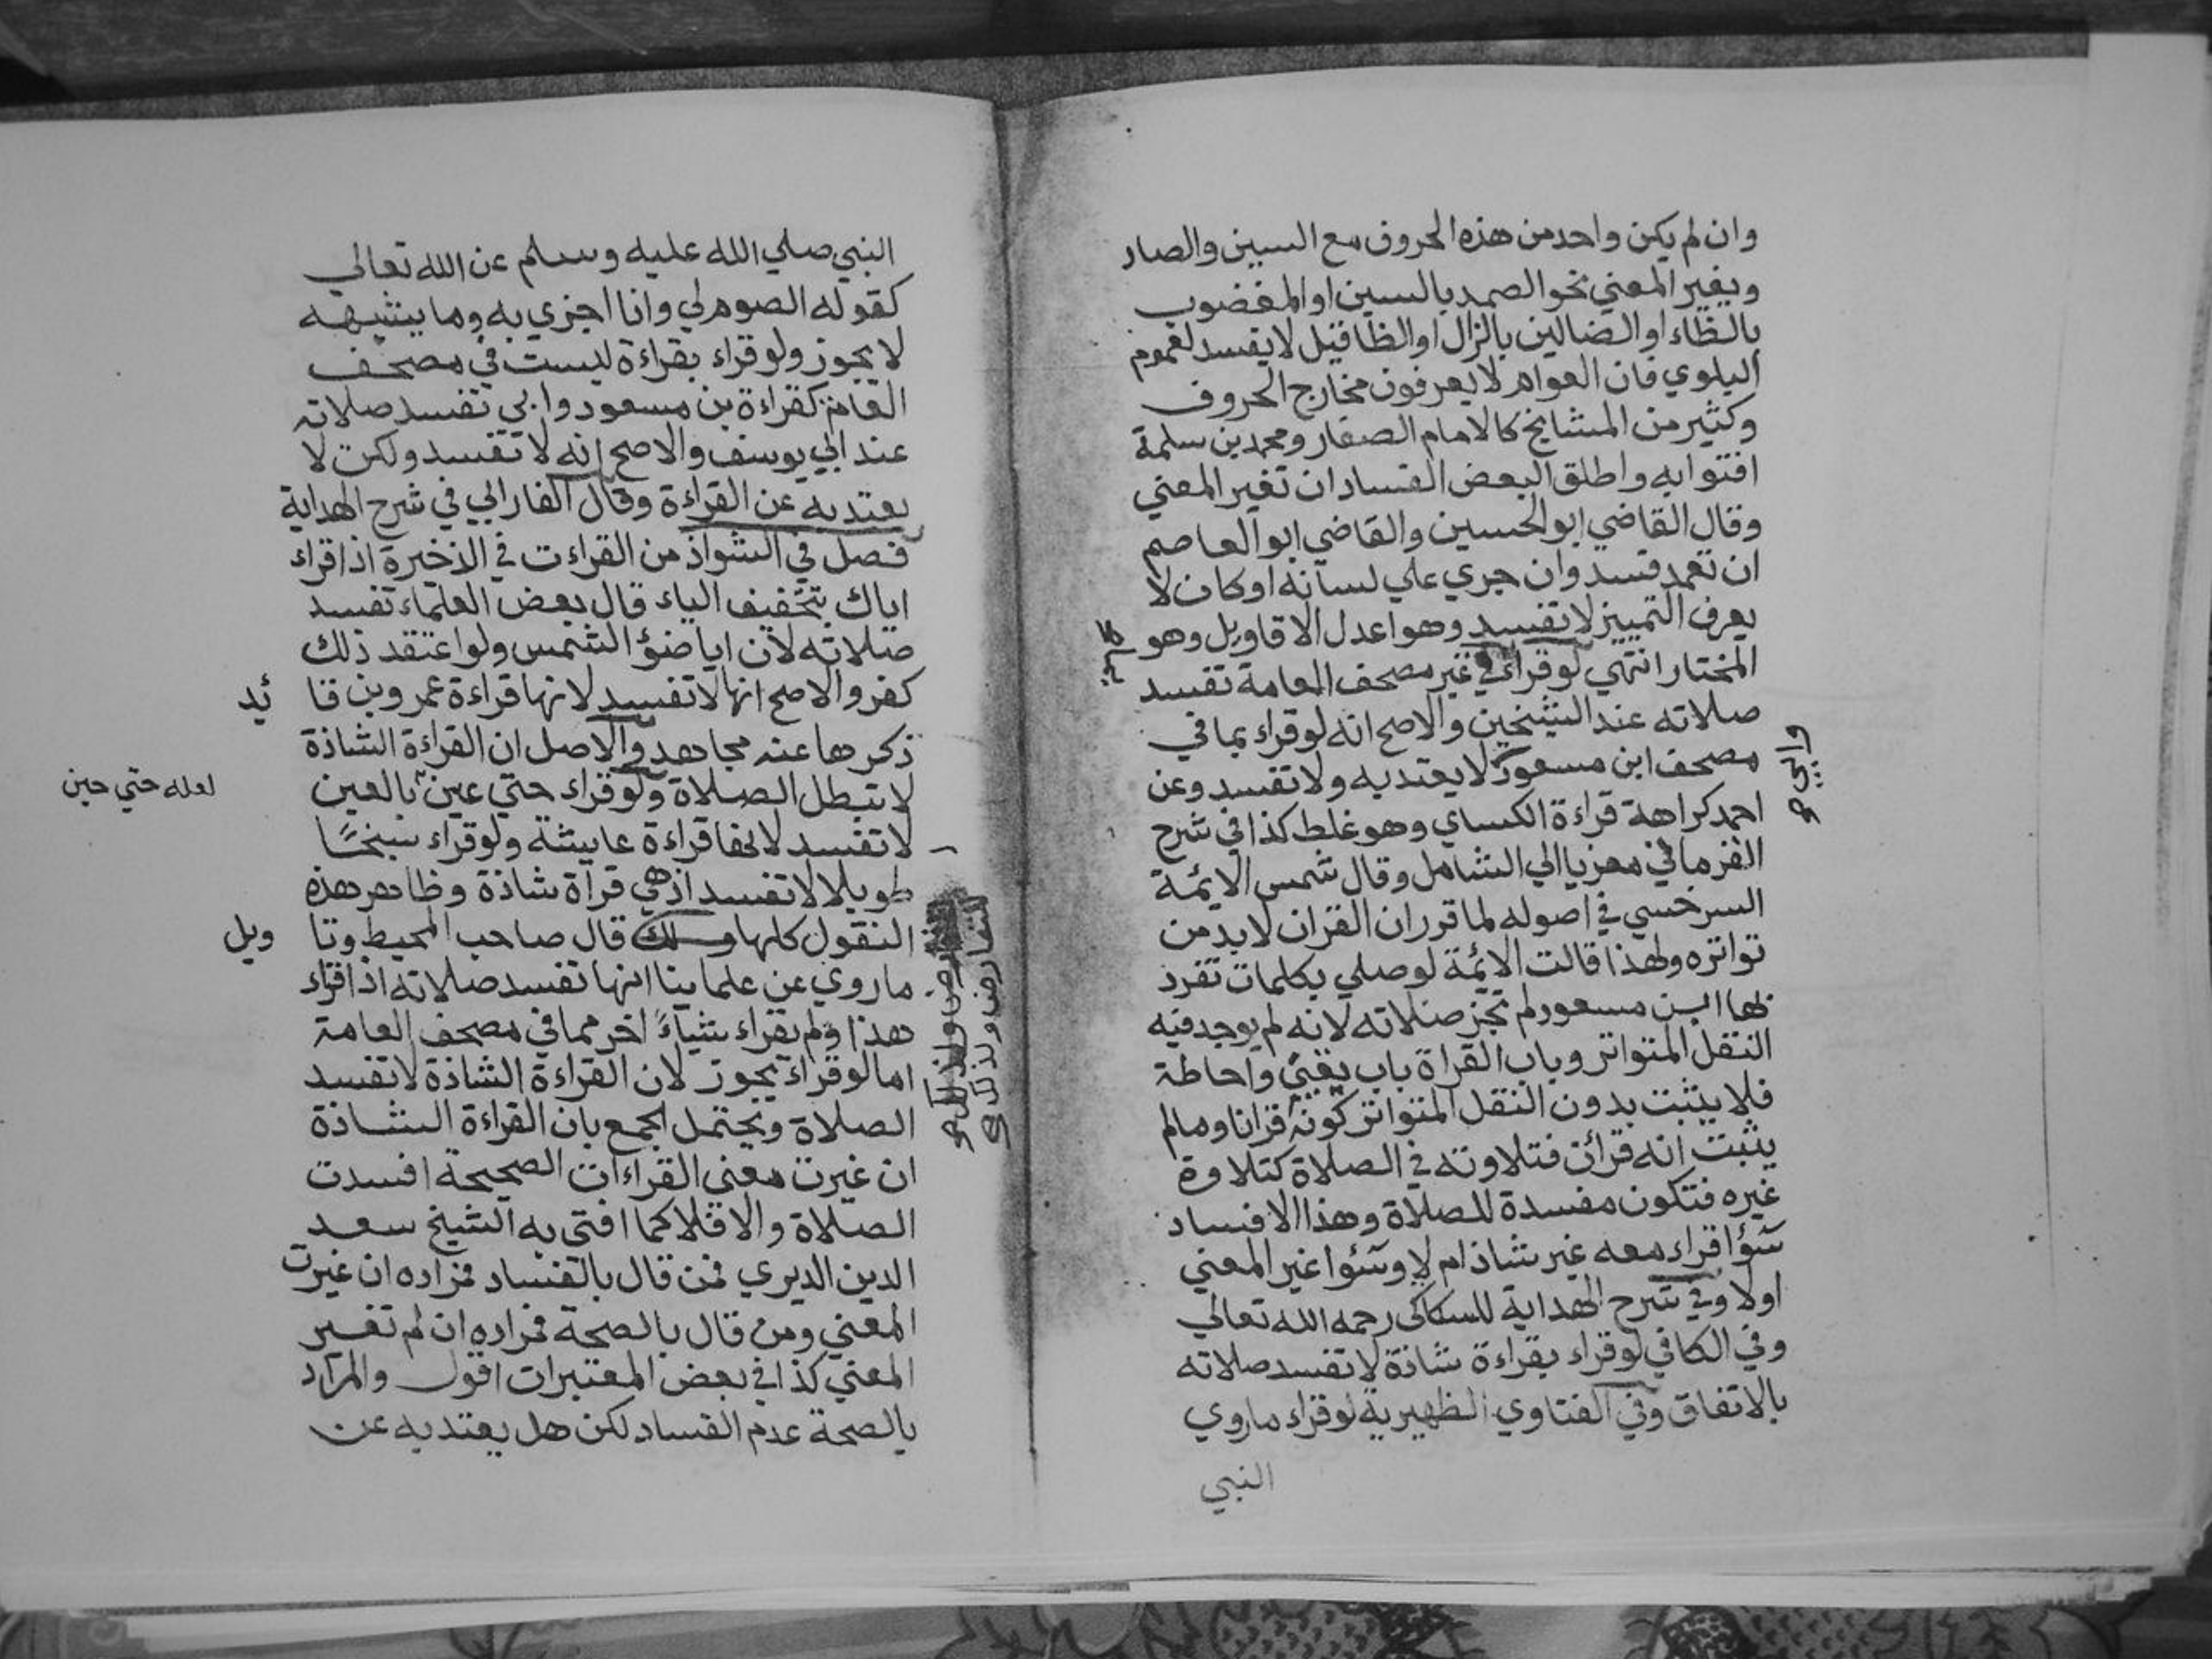 وان لم يكن واحد من هذه الحروف مع السين والصاد
ويغير المعني نحو الصمد بالسين او المغضوب
بالظاء او الضالين بالزال او الظا قيل لا يفسد لعموم
البلوي فان العوام لا يعرفون مخارج الحروف
وكثير من المشايخ كالامام الصفار ومحمد بن سلمة
افتوا به واطلق البعض الفساد ان تغير المعني
وقال القاضي ابو الحسين والقاضي ابو العاصم
ان تعمد فسد وان جري علي لسانه او كان لا
يعرف التمييز لا تفسد وهو اعدل الاقاويل وهو
المختار انتهي لو قراء في غير مصحف العامة تفسد
صلاته عند الشيخين والاصح انه لو قراء بما في
مصحف ابن مسعود لا يعتد به ولا تفسد وعن
وابي صح
احمد كراهة قراءة الكساي وهو غلط كذا في شرح
الغزماني معزيا الي الشامل وقال شمس الايمة
السرخسي في اصوله لما قرر ان القران لا بد من
تواتره ولهذا قالت الايمة لو صلي بكلمات تفرد
بها ابن مسعود لم تجز صلاته لانه لم يوجد فيه
النقل المتواتر وباب القراة باب يقين واحاطة
فلا يثبت بدون النقل المتواتر كونه قرانا وما لم
يثبت انه قرآن فتلاوته في الصلاة كتلاوة
غيره فتكون مفسدة للصلاة وهذا الافساد
سؤا قراء معه غير شاذ ام لا وسؤا غير المعني
اولا وفي شرح الهداية للسكاكى رحمه الله تعالي
وفي الكافي لو قراء بقراءة شاذة لا تفسد صلاته
بالاتفاق وفي الفتاوي الظهيرية لو قراء ما روي
النبي
النبي صلي الله عليه وسلم عن الله تعالي
كقوله الصوم لي وانا اجزي به وما يشبهه
لا يجوز ولو قراء بقراءة ليست في مصحف
العامة كقراءة بن مسعود وابي تفسد صلاته
عند ابي يوسف والاصح انه لا تفسد ولكن لا
يعتد به عن القراءة وقال الفارابي في شرح الهداية
فصل في الشواذ من القراءت في الذخيرة اذا قراء
اياك بتخفيف الياء قال بعض العلماء تفسد
صلاته لان ايا ضؤ الشمس ولو اعتقد ذلك
كفر والاصح انها لا تفسد لانها قراءة عمرو بن فا ئد
ذكرها عنه مجاهد والاصل ان القراءة الشاذة
لا تبطل الصلاة ولو قراء حتي عين بالعين
لعله حتي حين
لا تفسد لانها قراءة عايشة ولو قراء سبخًا
طويلا لا تفسد اذ هي قراة شاذة وظاهر هذه
النقول كلها قال صاحب المحيط وتا ويل
التعارض ولذلك صح
ما روي عن علماينا انها تفسد صلاته اذا قراء
هذا ولم يقراء شياءً اخر مما في مصحف العامة
اما لو قراء يجوز لان القراءة الشاذة لا تفسد
الصلاة ويحتمل الجمع بان القراءة الشاذة
ان غيرت معني القراءات الصحيحة افسدت
الصلاة والا فلا كما افتى به الشيخ سعد
الدين الديري فمن قال بالفساد فمراده ان غيرت
المعني ومن قال بالصحة فمراده ان لم تغير
المعني كذا في بعض المعتبرات اقول والمراد
بالصحة عدم الفساد لكن هل يعتد به عن